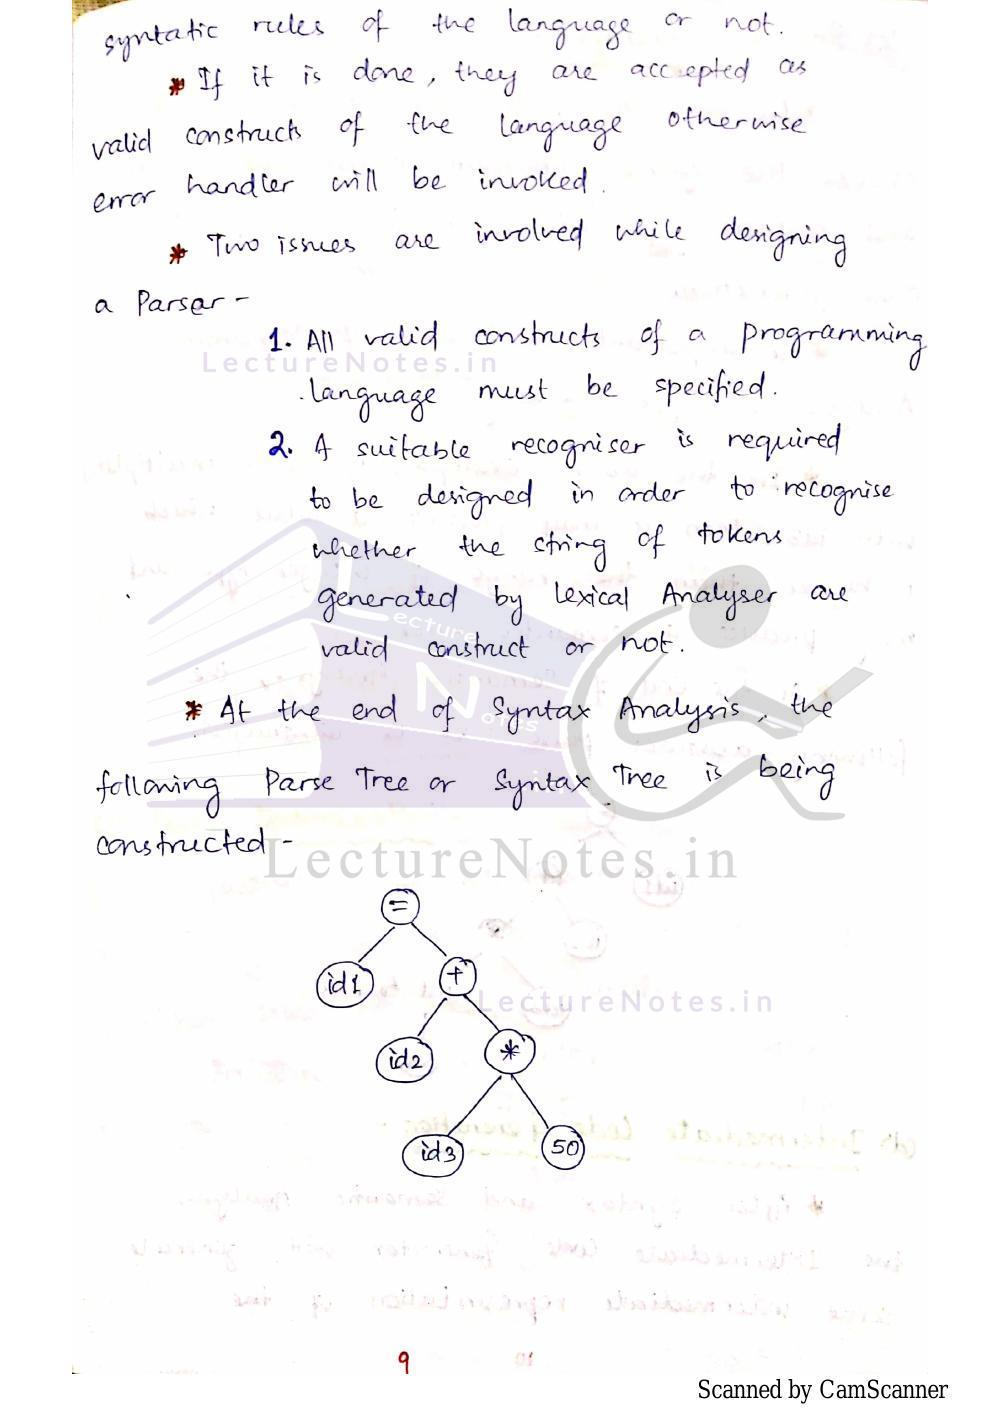 syntatic rules of the language or not.
* If it is done, they are accepted as
valid constructs of the language otherwise
error handler will be invoked.
* Two issues are involved while designing
a Parser -
1. All valid constructs of a programming
LectureNotes.in
language must be specified.
2. A suitable recogniser is required
to be designed in order to recognise
whether the string of tokens
generated by Lexical Analyser are
Lecture
valid construct or not.
Notes
* At the end of Syntax Analysis, the
following Parse Tree or Syntax Tree is being
constructed -
LectureNotes.in
=
id1 +
LectureNotes.in
id2 *
id3 50
9
Scanned by CamScanner